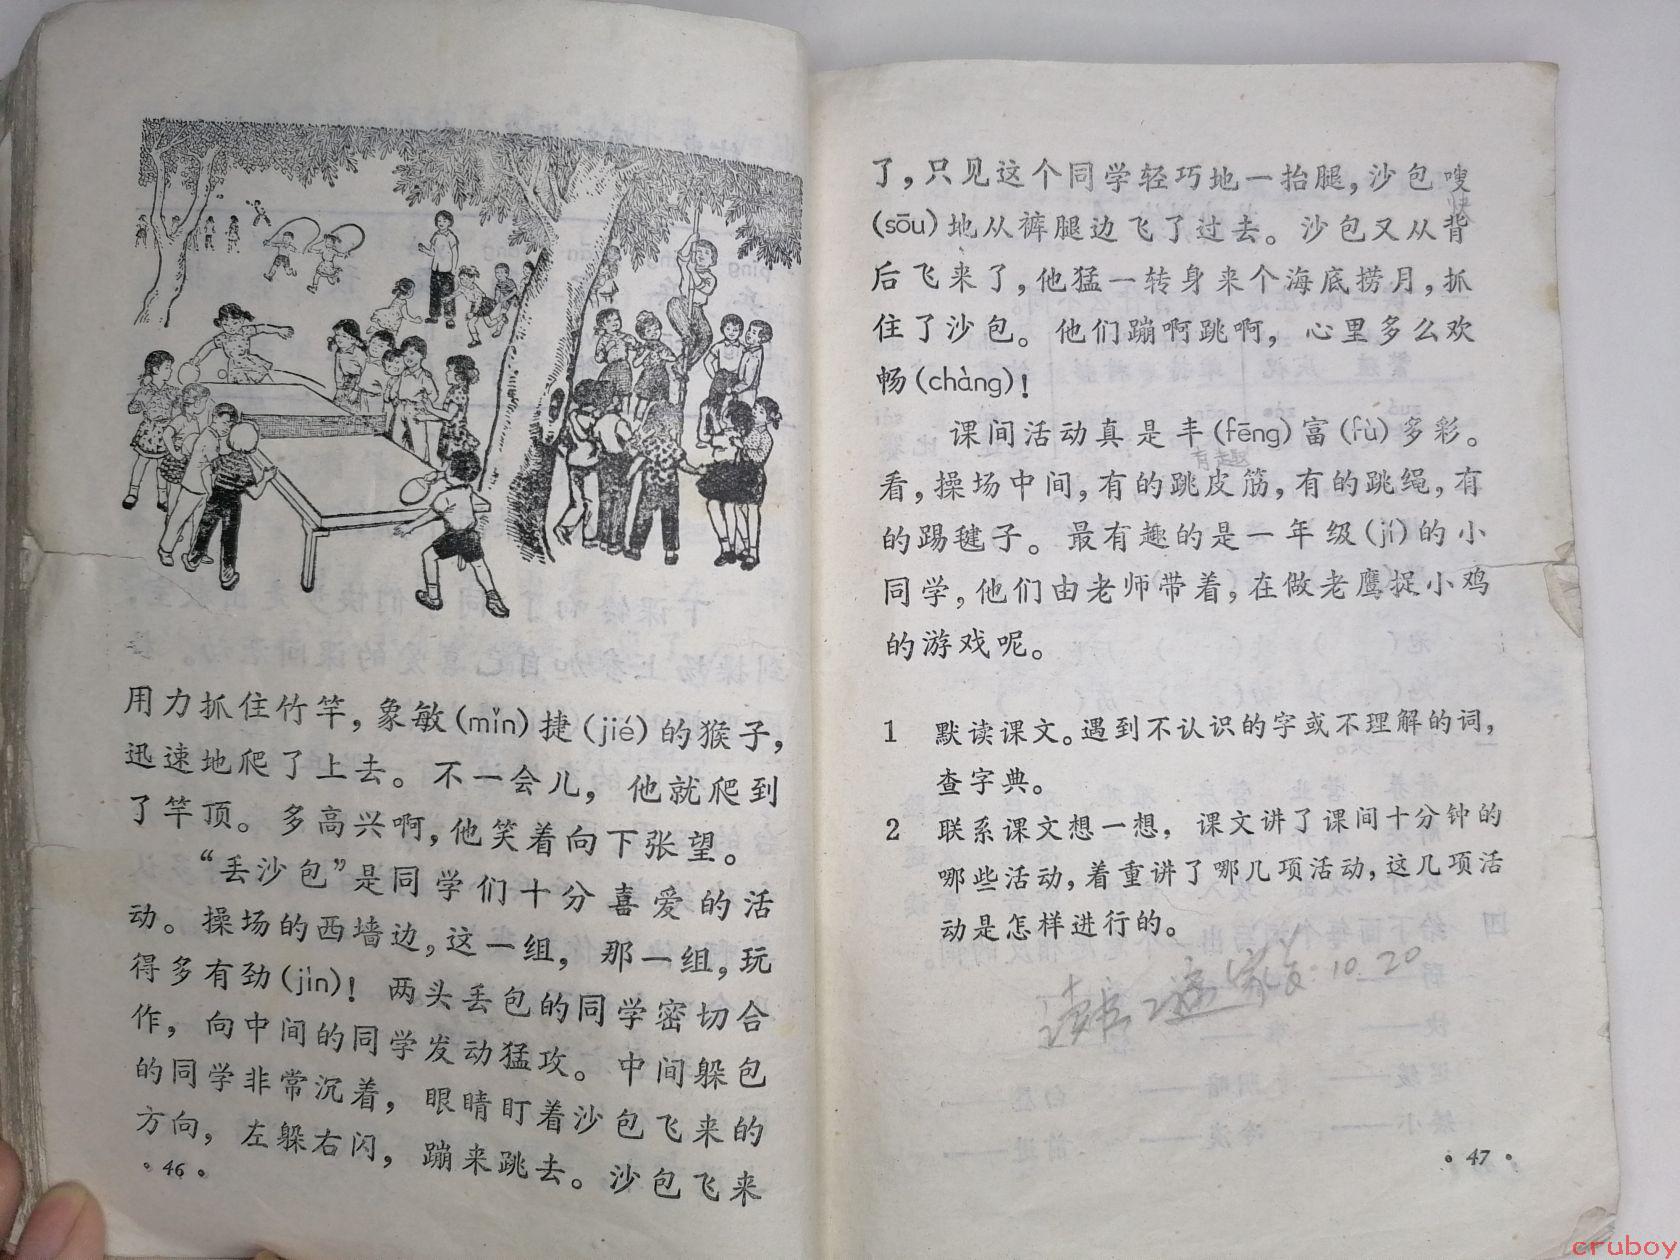 用力抓住竹竿，象敏(mǐn)捷(jié)的猴子，
迅速地爬了上去。不一会儿，他就爬到
了竿顶。多高兴啊，他笑着向下张望。
“丢沙包”是同学们十分喜爱的活
动。操场的西墙边，这一组，那一组，玩
得多有劲(jìn)！两头丢包的同学密切合
作，向中间的同学发动猛攻。中间躲包
的同学非常沉着，眼睛盯着沙包飞来的
方向，左躲右闪，蹦来跳去。沙包飞来
·46·
了，只见这个同学轻巧地一抬腿，沙包嗖
(sōu)地从裤腿边飞了过去。沙包又从背
后飞来了，他猛一转身来个海底捞月，抓
住了沙包。他们蹦啊跳啊，心里多么欢
畅(chàng)！
课间活动真是丰(fēng)富(fù)多彩。
有趣
看，操场中间，有的跳皮筋，有的跳绳，有
的踢毽子。最有趣的是一年级(jí)的小
同学，他们由老师带着，在做老鹰捉小鸡
的游戏呢。
1 默读课文。遇到不认识的字或不理解的词，
查字典。
2 联系课文想一想，课文讲了课间十分钟的
哪些活动，着重讲了哪几项活动，这几项活
动是怎样进行的。
10.20
·47·
cruboy